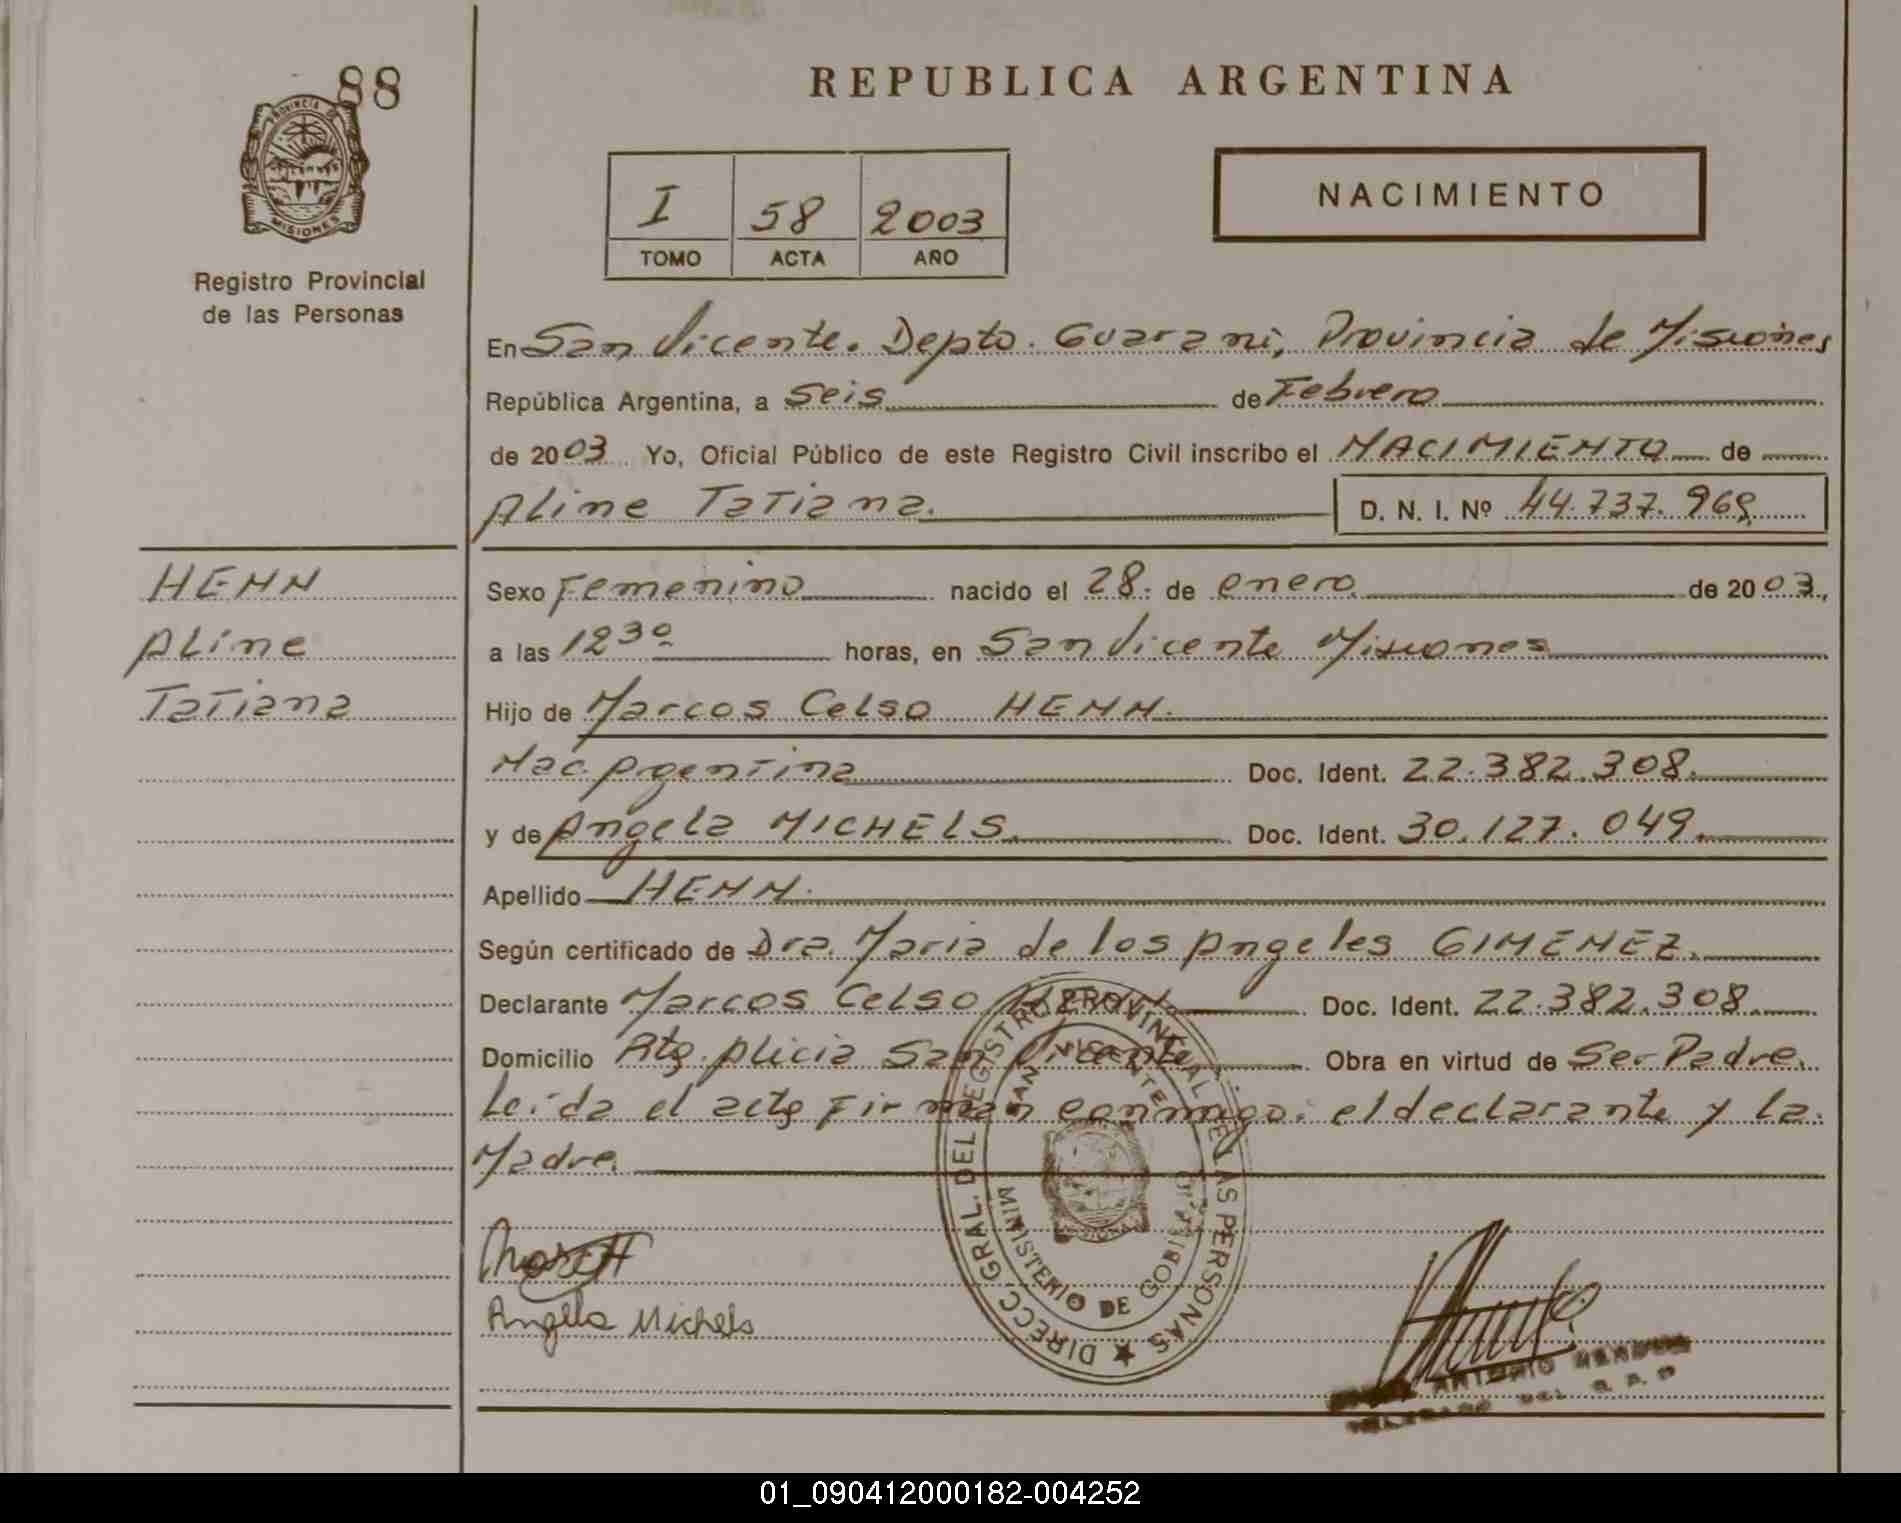 88
REPUBLICA ARGENTINA
PROVINCIA DE
MISIONES
Registro Provincial
de las Personas
I 58 2003
TOMO ACTA AÑO
NACIMIENTO
En San Vicente. Depto. Guarani, Provincia de Misiones
República Argentina, a Seis de Febrero
de 2003 Yo, Oficial Público de este Registro Civil inscribo el NACIMIENTO de
Aline Tatiana. D. N. I. Nº 44.737.968
HENN
Aline
Tatiana
Sexo Femenino nacido el 28 de enero de 2003,
a las 12 30 horas, en San Vicente Misiones
Hijo de Marcos Celso HENN.
Nac. Argentina Doc. Ident. 22.382.308.
y de Angela MICHELS. Doc. Ident. 30.127.049.
Apellido HENN.
Según certificado de Dra. Maria de los Angeles GIMENEZ.
Declarante Marcos Celso HENN. Doc. Ident. 22.382.308.
Domicilio Alicia San Vicente. Obra en virtud de Ser Padre.
Leida el acta Firman conmigo: el declarante y la
Madre.
DIRECC. GRAL. DEL REGISTRO PROVINCIAL DE LAS PERSONAS
SAN VICENTE
MINISTERIO DE GOBIERNO
MISIONES
Angela Michels
ANTONIO
DELEGADO DEL R. P. P
01_090412000182-004252